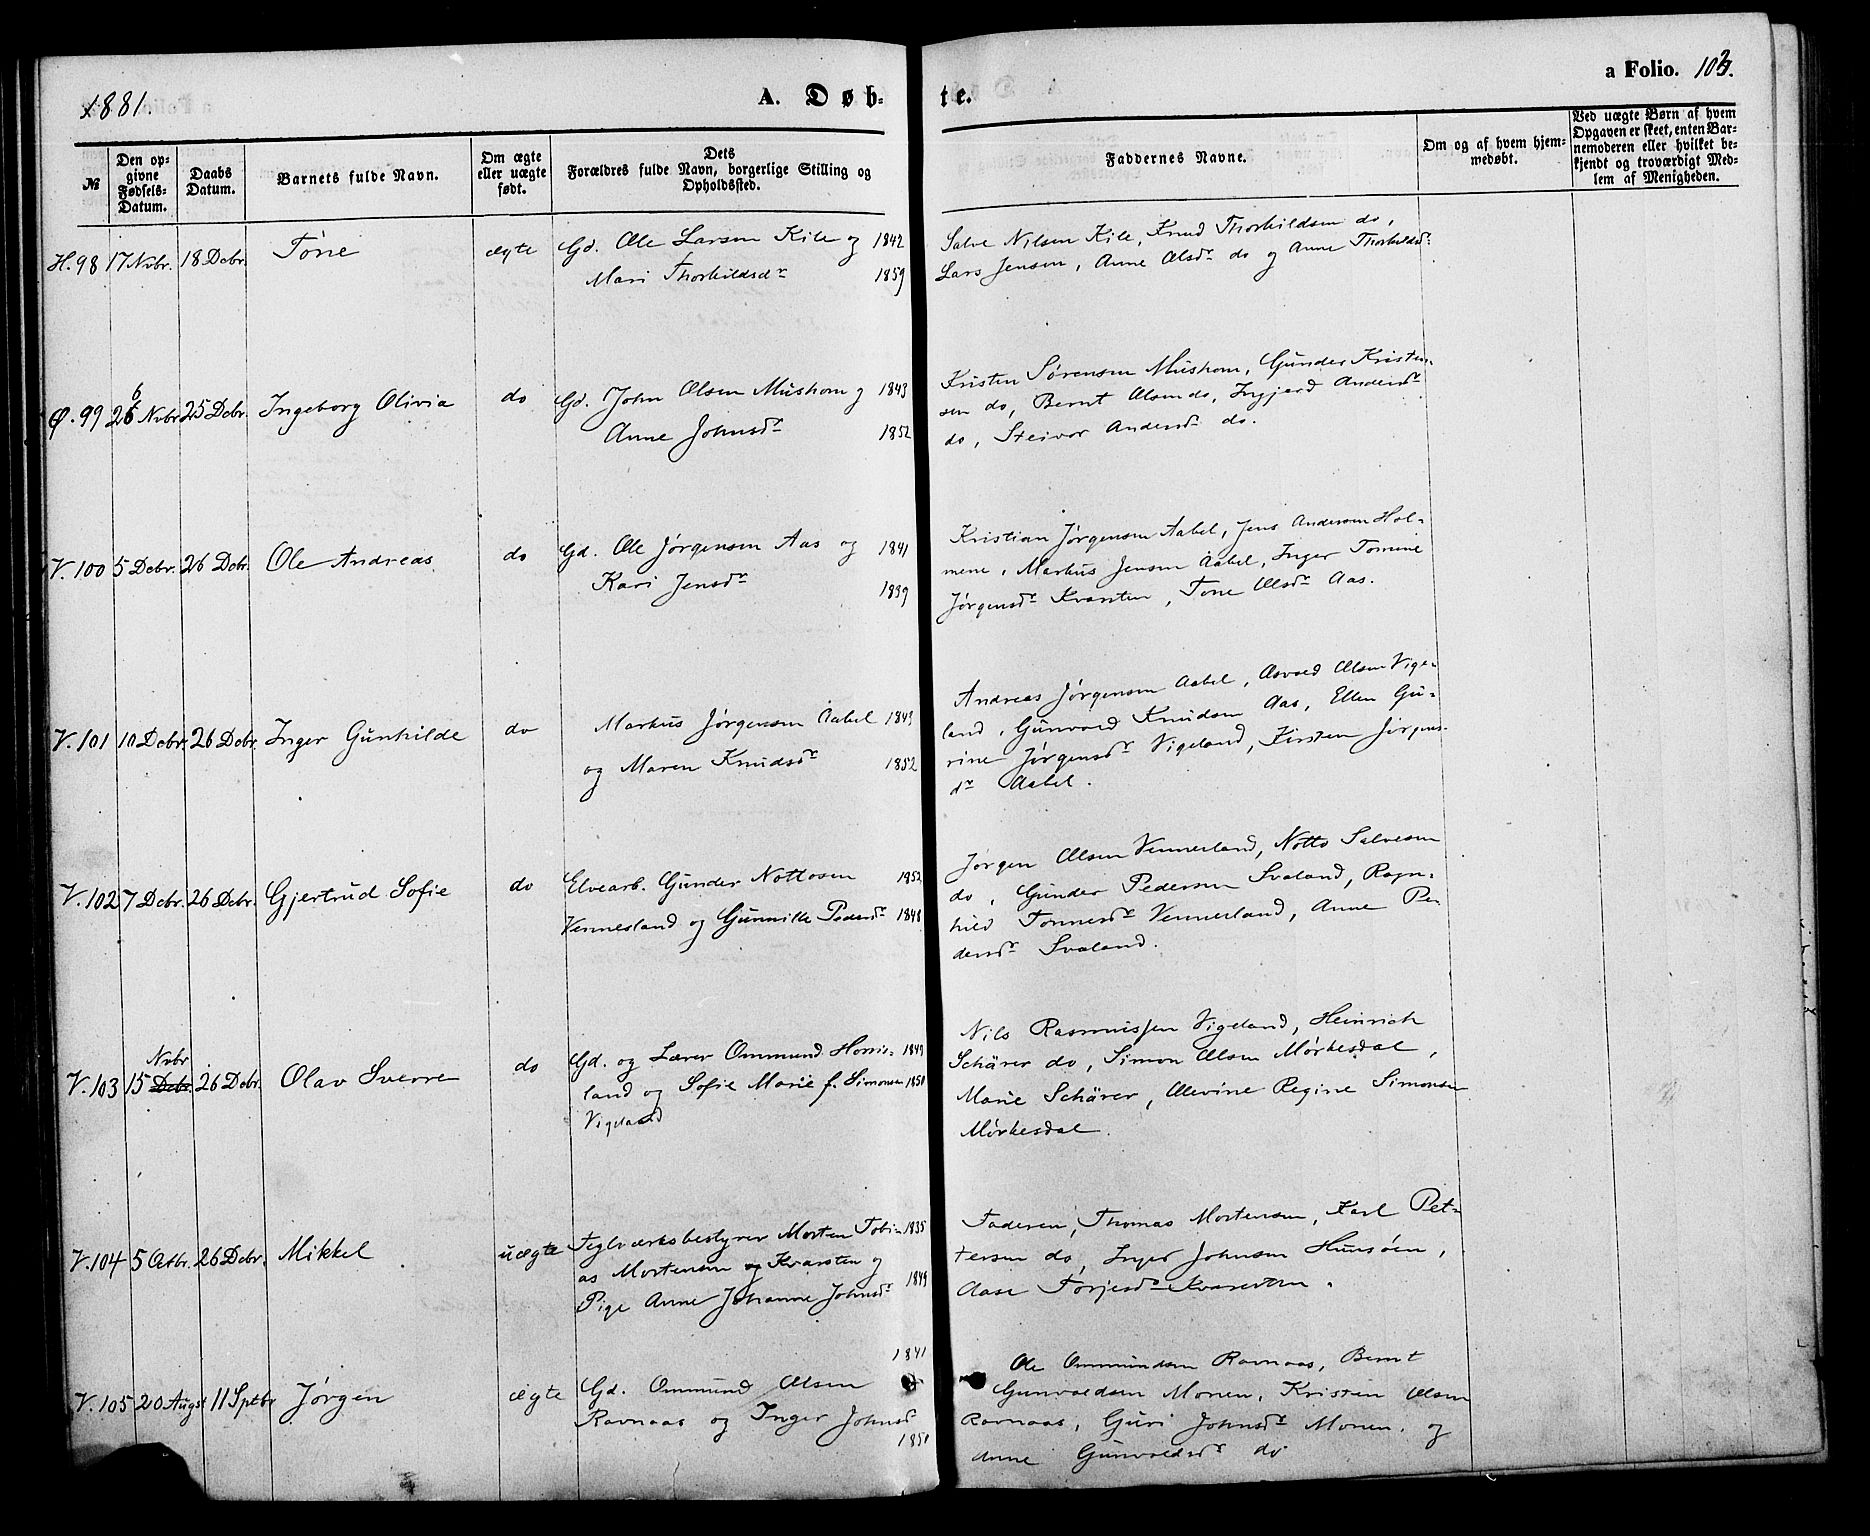 1881. A. Døb-te. a Folio. 103.
№
Den opgivne Fødsels-Datum.
Daabs Datum.
Barnets fulde Navn.
Om ægte eller uægte født.
Dets Forældres fulde Navn, borgerlige Stilling og Opholdssted.
Faddernes Navne.
Om og af hvem hjemmedøbt.
Ved uægte Børn af hvem Opgaven er skeet, enten Barnemoderen eller hvilket bekjendt og troværdigt Medlem af Menigheden.
H. 98 17 Nvbr. 18 Dcbr. Tone ægte
Gd. Ole Larsen Kile og 1842
Mari Thorkildsdr 1859
Salve Nilsen Kile, Knud Thorkildsen do,
Lars Jensen, Anne Olsdr do og Anne Thorkildsdr
Ø. 99 26 Nvbr. 25 Dcbr. Ingeborg Olivia do
Gd. John Olsen Mushom og 1843
Anne Johnsdr 1852
Kristen Sørensen Mushom, Gunder Kristen-
sen do, Bernt Olsen do, Ingjerd Andersdr
do, Steivor Andersdr do.
V. 100 5 Dcbr. 26 Dcbr. Ole Andreas do
Gd. Ole Jørgensen Aas og 1841
Kari Jensdr 1839
Kristian Jørgensen Aabel, Jens Andersen Hol-
mene, Markus Jensen Aabel, Inger Tomine
Jørgensdr Kvarsten, Tone Olsdr Aas.
V. 101 10 Dcbr. 26 Dcbr. Inger Gunhilde do
Markus Jørgensen Aabel 1843
og Maren Knudsdr 1852
Andreas Jørgensen Aabel, Osvald Olsen Vige-
land, Gunvald Knudsen Aas, Ellen Gu-
rine Jørgensdr Vigeland, Kirsten Jørgens-
dr Aabel.
V. 102 7 Dcbr. 26 Dcbr. Gjertrud Sofie do
Elvearb. Gunder Nottosen 1852
Vennesland og Gunnille Pedersdr 1848
Jørgen Olsen Vennesland, Notto Salvesen
do, Gunder Pedersen Svaland, Ragn-
hild Tomesdr Vennesland, Anne Pe-
dersdr Svaland.
Nvbr
V. 103 15 Dcbr. 26 Dcbr. Olav Sverre do
Gd. og Lærer Ommund Horris- 1849
land og Sofie Marie f. Simonsen 1850
Vigeland
Nils Rasmussen Vigeland, Heinrich
Schärer do, Simon Olsen Mørkesdal,
Marie Schärer, Olevine Regine Simonsen
Mørkesdal.
V. 104 5 Octbr. 26 Dcbr. Mikkel uægte
Teglværksbestyrer Morten Tobi- 1835
as Mortensen Kvarsten og
Pige Anne Johanne Johnsdr 1849
Faderen, Thomas Mortensen, Karl Pet-
tersen do, Inger Johnsen Hunsøen,
Aase Torjesdr Kvarsten.
V. 105 20 Augst 11 Sptbr Jørgen ægte
1841
Gd. Ommund Olsen
Ravnaas og Inger Johnsdr
1850
Ole Ommundsen Ravnaas, Bernt
Gunvaldsen Monen, Kristen Olsen
Ravnaas, Guri Johnsdr Monen, og
Anne Gunvaldsdr do